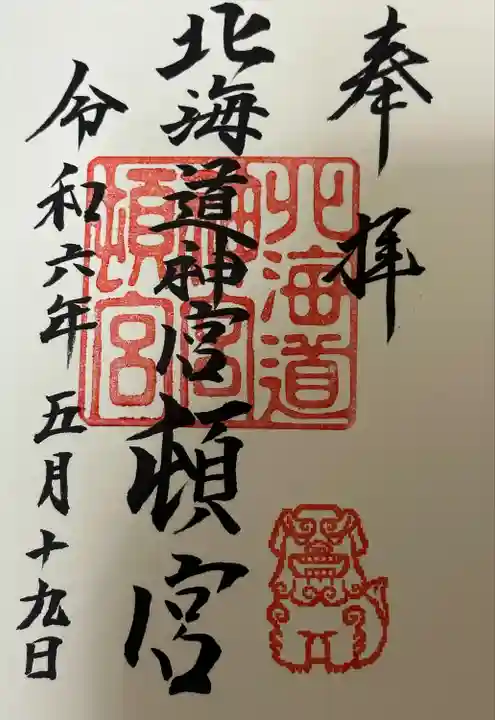 奉拝
北海道神宮頓宮
令和六年五月十九日
北海道
神宮
頓宮